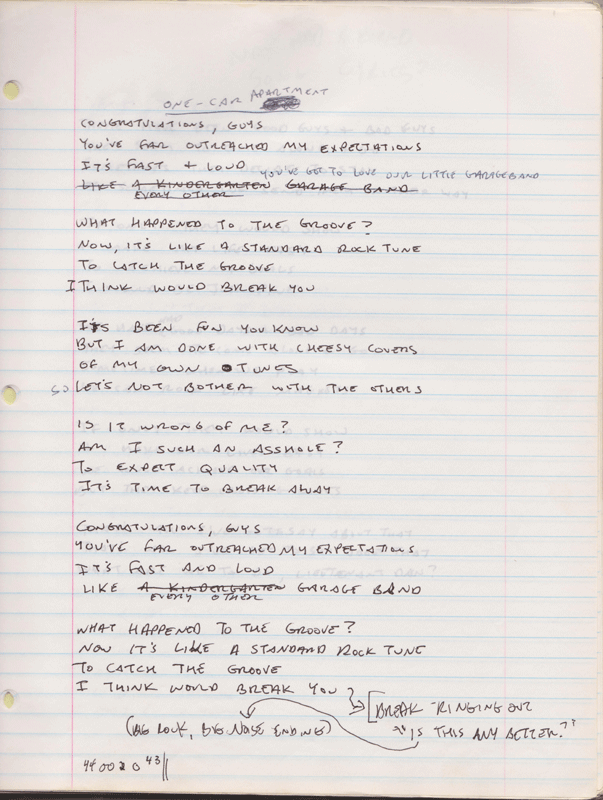 ONE-CAR APARTMENT
CONGRATULATIONS, GUYS
YOU'VE FAR OUTREACHED MY EXPECTATIONS
IT'S FAST + LOUD YOU'VE GOT TO LOVE OUR LITTLE GARAGEBAND
LIKE A KINDERGARTEN GARAGE BAND
EVERY OTHER
WHAT HAPPENED TO THE GROOVE?
NOW, IT'S LIKE A STANDARD ROCK TUNE
TO CATCH THE GROOVE
I THINK WOULD BREAK YOU
IT'S BEEN FUN YOU KNOW
BUT I AM DONE WITH CHEESY COVERS
OF MY OWN TUNES
SO LET'S NOT BOTHER WITH THE OTHERS
IS IT WRONG OF ME?
AM I SUCH AN ASSHOLE?
TO EXPECT QUALITY
IT'S TIME TO BREAK AWAY
CONGRATULATIONS, GUYS
YOU'VE FAR OUTREACHED MY EXPECTATIONS
IT'S FAST AND LOUD
LIKE A KINDERGARTEN GARAGE BAND
EVERY OTHER
WHAT HAPPENED TO THE GROOVE?
NOW IT'S LIKE A STANDARD ROCK TUNE
TO CATCH THE GROOVE
I THINK WOULD BREAK YOU?
[BREAK - RINGING OUT
"IS THIS ANY BETTER?"
(BIG ROCK, BIG NOISE ENDING)